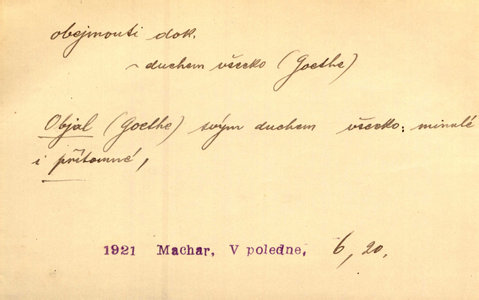 obejmouti dok.
~ duchem všecko (Goethe)
Objal (Goethe) svým duchem všecko: minulé
i přítomné,
1921 Machar, V poledne, 6, 20.